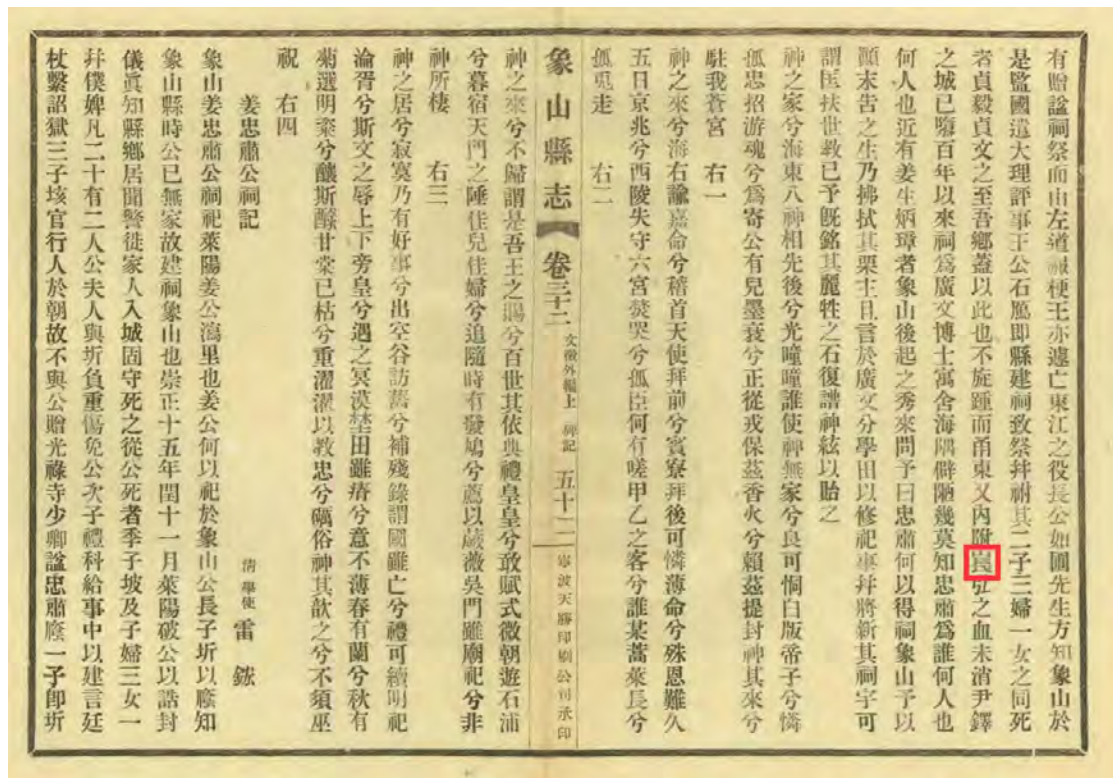 有贈諡祠祭而山左道梗王亦遽亡東江之役長公如圃先生方知象山於
是監國遣大理評事王公石鴈即縣建祠致祭幷祔其二子三婦一女之同死
者貞毅貞文之至吾鄉蓋以此也不旋踵而甬東又內附萇弘之血未消尹鐸
之城已隳百年以來祠爲廣文博士寓舍海隅僻陋幾莫知忠肅爲誰何人也
何人也近有姜生炳璋者象山後起之秀來問予曰忠肅何以得祠象山予以
顚末告之生乃拂拭其栗主且言於廣文分學田以修祀事幷將新其祠宇可
謂匡扶世敎已予旣銘其麗牲之石復譜神絃以貽之
神之家兮海東八神相先後兮光曈曈誰使神無家兮良可恫白版帝子兮憐
孤忠招游魂兮爲寄公有兒墨衰兮正從戎保茲香火兮賴茲提封神其來兮
駐我蒼宮　右一
神之來兮海右諭嘉命兮稽首天使拜前兮賓寮拜後可憐薄命兮殊恩難久
五日京兆兮西陵失守六宮焚哭兮孤臣何有嗟甲乙之客兮誰某蒿萊長兮
孤兎走　右二
象山縣志　卷三十二　文徵外編上　碑記　五十二　寧波天勝印刷公司承印
神之來兮不歸謂是吾王之賜兮百世其依典禮皇皇兮敢賦式微朝遊石浦
兮暮宿天門之陲佳兒佳婦兮追隨時有發鳩兮薦以蕨薇吳門雖廟祀兮非
神所棲　右三
神之居兮寂寞乃有好事兮出空谷訪舊兮補殘錄謂國雖亡兮禮可續明祀
淪胥兮斯文之辱上下旁皇兮遇之冥漠埜田雖瘠兮意不薄春有蘭兮秋有
菊選明粢兮釀斯醁甘棠已枯兮重濯濯以敎忠兮礪俗神其歆之兮不須巫
祝　右四
姜忠肅公祠記
淸學使　雷鋐
象山姜忠肅公祠祀萊陽姜公瀉里也姜公何以祀於象山公長子圻以廕知
象山縣時公已無家故建祠象山也崇正十五年閏十一月萊陽破公以誥封
儀眞知縣鄉居聞警徙家人入城固守死之從公死者季子坡及子婦三女一
幷僕婢凡二十有二人公夫人與圻負重傷免公次子禮科給事中以建言廷
杖繫詔獄三子垓官行人於朝故不與公贈光祿寺少卿諡忠肅廕一予卽圻